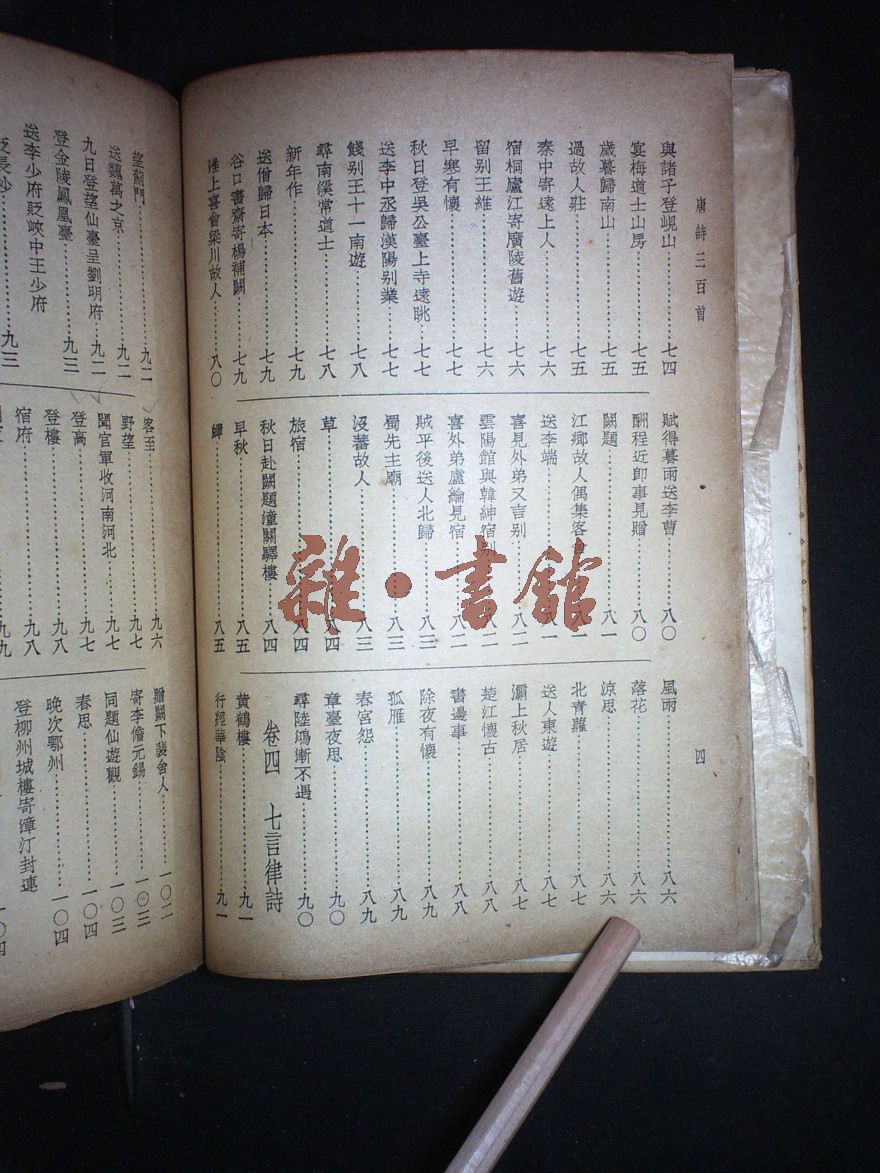 唐詩三百首
四
與諸子登峴山……七四
宴梅道士山房……七五
歲暮歸南山……七五
過故人莊……七五
秦中寄遠上人……七六
宿桐廬江寄廣陵舊遊……七六
留別王維……七六
早寒有懷……七七
秋日登吳公臺上寺遠眺……七七
送李中丞歸漢陽別業……七七
餞別王十一南遊……七八
尋南溪常道士……七八
新年作……七九
送僧歸日本……七九
谷口書齋寄楊補闕……七九
淮上喜會梁川故人……八〇
賦得暮雨送李曹……八〇
酬程近卽事見贈……八〇
闕題……八一
江鄉故人偶集客
送李端
喜見外弟又言別……八二
雲陽館與韓紳宿別……八二
喜外弟盧綸見宿……八二
賊平後送人北歸……八三
蜀先主廟……八三
沒蕃故人……八三
草……八四
旅宿……八四
秋日赴闕題潼關驛樓……八四
早秋……八五
蟬……八五
風雨……八六
落花……八六
涼思……八六
北青蘿……八七
送人東遊……八七
灞上秋居……八七
楚江懷古……八八
書邊事……八八
除夜有懷……八九
孤雁……八九
春宮怨……八九
章臺夜思……九〇
尋陸鴻漸不遇……九〇
卷四 七言律詩
黃鶴樓……九一
行經華陰……九一
望薊門……九二
送魏萬之京……九二
九日登望仙臺呈劉明府……九二
登金陵鳳凰臺……九三
送李少府貶峽中王少府
長沙……九三
客至……九六
野望……九七
聞官軍收河南河北……九七
登高……九七
登樓……九八
宿府……九八
九九
贈闕下裴舍人……一〇二
寄李儋元錫……一〇三
同題仙遊觀……一〇三
春思……一〇四
晚次鄂州……一〇四
登柳州城樓寄漳汀封連
一〇四
雜·書館